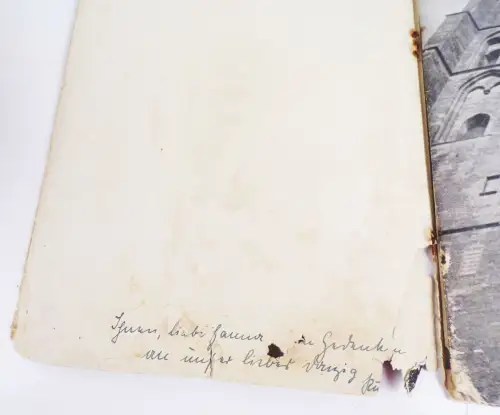 Ihnen, liebe Hanna im Gedenken
an unser liebes Danzig